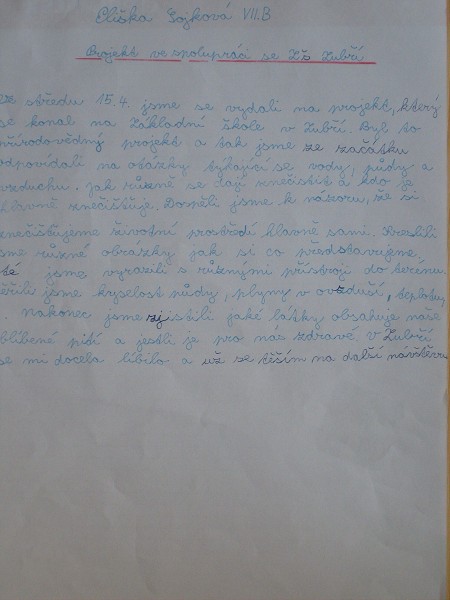 Eliška Sojková VII.B
Projekt ve spolupráci se Zš Zubří
středu 15.4. jsme se vydali na projekt, který
se konal na Základní škole v Zubří. Byl to
přírodovědný projekt a tak jsme ze začátku
odpovídali na otázky týkající se vody, půdy a
vzduchu. Jak různě se dají znečistit a kdo je
hlavně znečišťuje. Dospěli jsme k názoru, že si
znečišťujeme životní prostředí hlavně sami. Kreslili
jsme různé obrázky jak si co představujeme,
té jsme vyrazili s různými přístroji do terénu
ěřili jsme kyselost půdy, plyny v ovzduší, teplotu
. Nakonec jsme zjistili jaké látky obsahuje naše
blíbené pití a jestli je pro nás zdravé. V Zubří
se mi docela líbilo a už se těším na další návštěvu